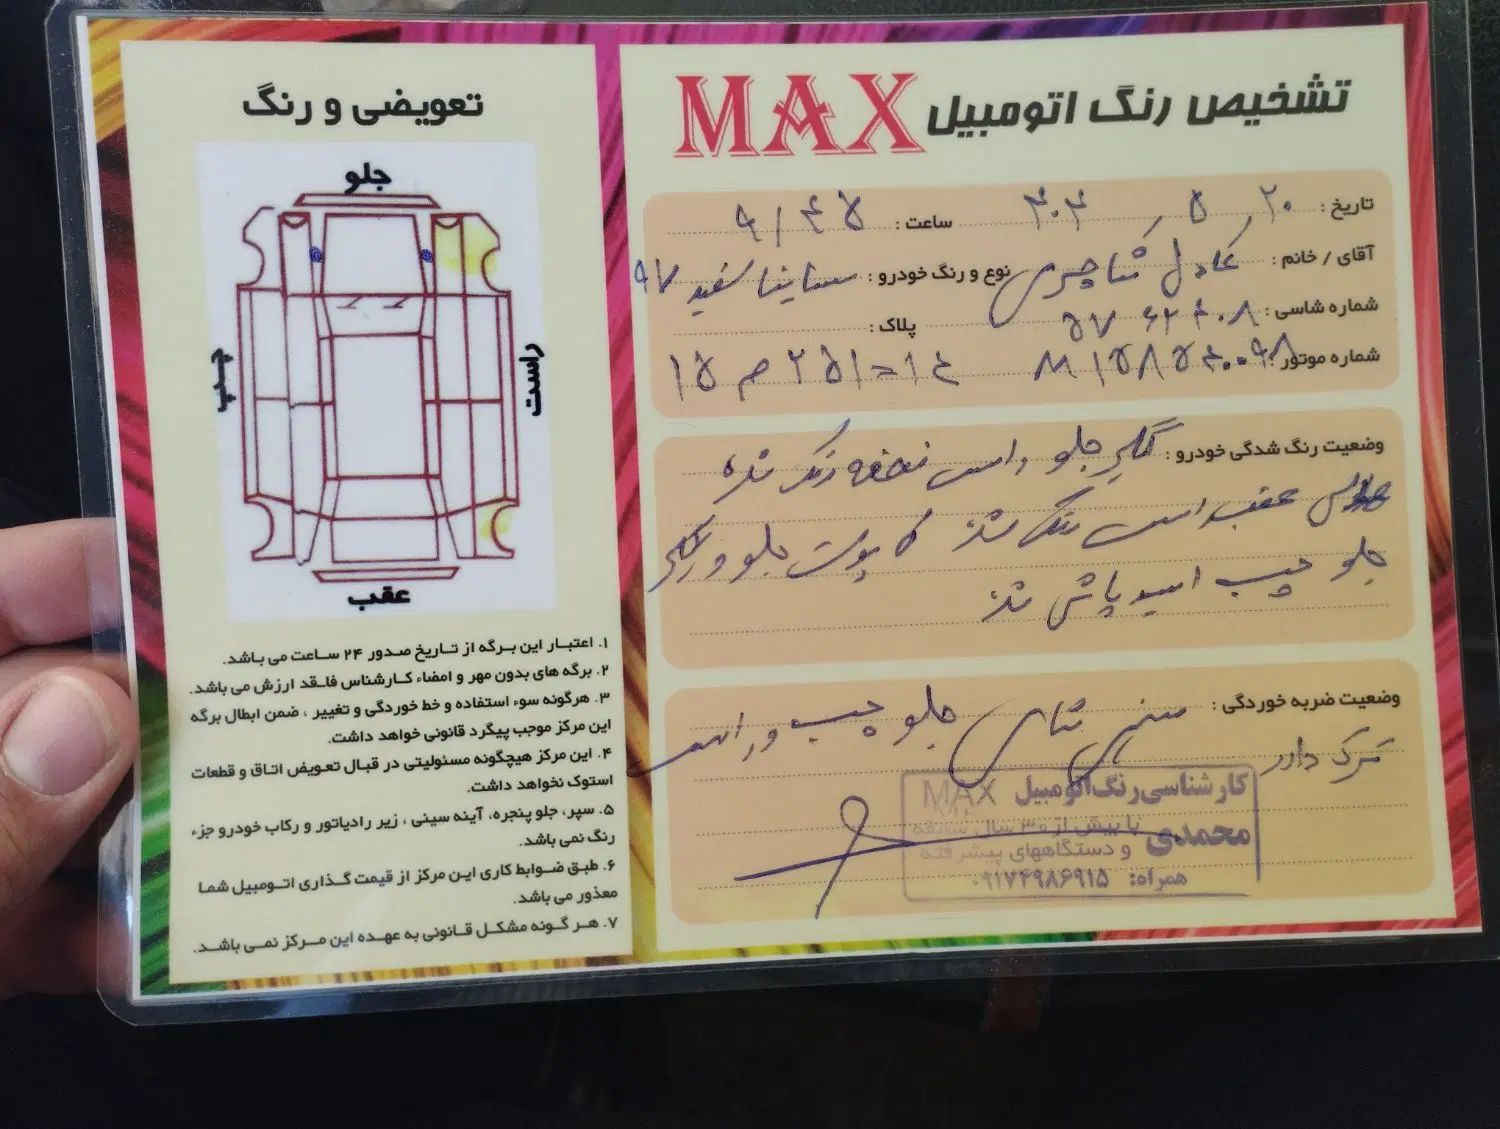 تعویضی و رنگ
جلو
چپ
راست
عقب
۱. اعتبار این برگه از تاریخ صدور ۲۴ ساعت می باشد.
۲. برگه های بدون مهر و امضاء کارشناس فاقد ارزش می باشد.
۳. هرگونه سوء استفاده و خط خوردگی و تغییر ، ضمن ابطال برگه
این مرکز موجب پیگرد قانونی خواهد داشت.
۴. این مرکز هیچگونه مسئولیتی در قبال تعویض اتاق و قطعات
استوک نخواهد داشت.
۵. سپر، جلو پنجره، آینه سینی ، زیر رادیاتور و رکاب خودرو جزء
رنگ نمی باشد.
۶. طبق ضوابط کاری این مرکز از قیمت گذاری اتومبیل شما
معذور می باشد.
۷. هر گونه مشکل قانونی به عهده این مرکز نمی باشد.
تشخیص رنگ اتومبیل MAX
تاریخ : ۲۰ / ۵ / ۴۰۴ ساعت : ۹/۴۵
آقای / خانم : عادل نوع و رنگ خودرو : ساینا سفید ۹۷
شماره شاسی : پلاک :
شماره موتور : M15/8540098 ۱۵ م ۲۵۱=۱۴
وضعیت رنگ شدگی خودرو : گلگیر جلو راست رنگ شده
عقب راست رنگ شده کاپوت جلو و گلگیر
جلو چپ اسید پاش شده
وضعیت ضربه خوردگی : سینی های جلو چپ و راست
ترک دارد
کارشناسی رنگ اتومبیل MAX
محمدی
با بیش از ۳۰ سال سابقه
و دستگاههای پیشرفته
همراه: ۰۹۱۷۴۹۸۶۹۱۵